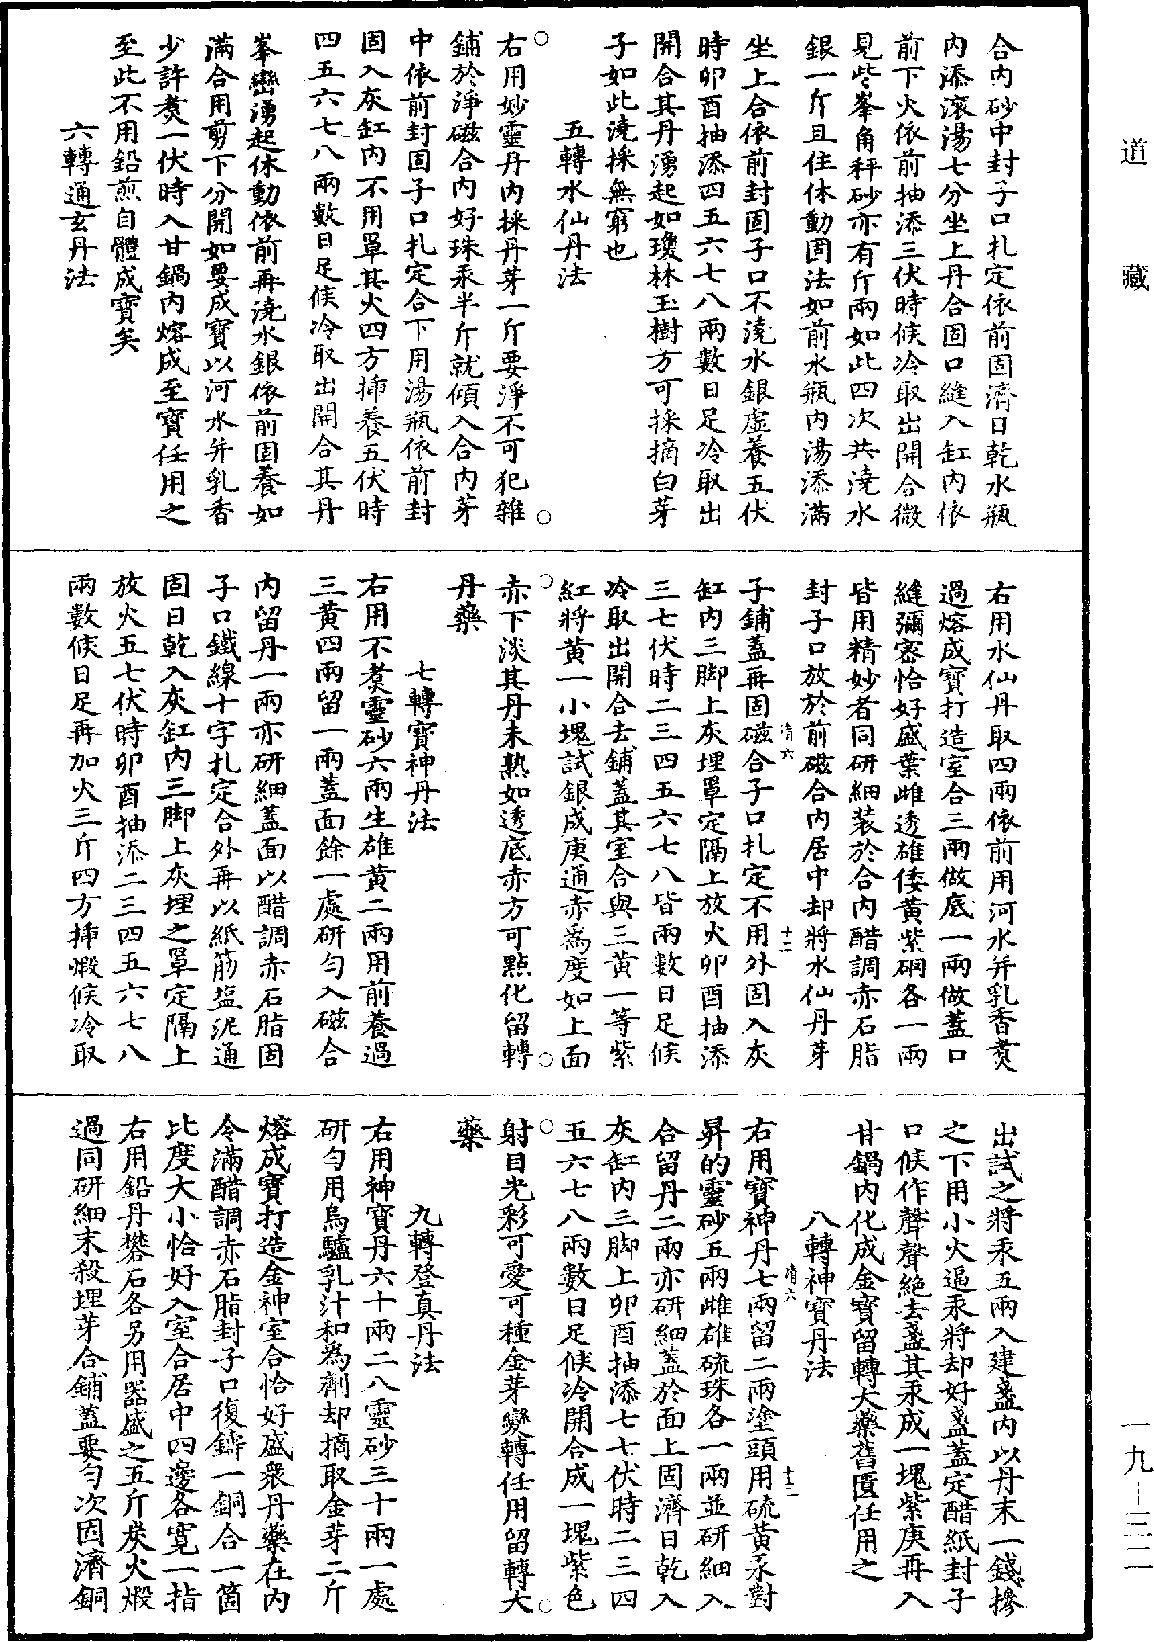 道藏
合內砂中封子口扎定依前固濟日乾水瓶
內添滾湯七分坐上丹合固口縫入缸內依
前下火依前抽添三伏時候冷取出開合微
見些峯角秤砂亦有斤兩如此四次共澆水
銀一斤且住休動固法如前水瓶內湯添滿
坐上合依前封固子口不澆水銀虛養五伏
時卯酉抽添四五六七八兩數日足冷取出
開合其丹湧起如瓊林玉樹方可採摘白芽
子如此澆採無窮也
五轉水仙丹法
右用妙靈丹內採丹芽一斤要淨不可犯雜
鋪於淨磁合內好珠汞半斤就傾入合內芽
中依前封固子口扎定合下用湯瓶依前封
固入灰缸內不用罩其火四方揷養五伏時
四五六七八兩數日足候冷取出開合其丹
峯巒湧起休動依前再澆水銀依前固養如
滿合用剪下分開如要成寶以河水并乳香
少許煑一伏時入甘鍋內熔成至寶任用之
至此不用鉛煎自體成寶矣
六轉通玄丹法
右用水仙丹取四兩依前用河水并乳香煑
過熔成寶打造室合三兩做底一兩做蓋口
縫彌密恰好盛葉雌透雄倭黃紫硇各一兩
皆用精妙者同研細裝於合內醋調赤石脂
封子口放於前磁合內居中却將水仙丹芽
子鋪蓋再固磁合子口扎定不用外固入灰
缸內三脚上灰埋罩定隔上放火卯酉抽添
三七伏時二三四五六七八皆兩數日足候
冷取出開合去鋪蓋其室合與三黃一等紫
紅將黃一小塊試銀成庚通赤爲度如上面
赤下淡其丹未熟如透底赤方可點化留轉
丹藥
七轉寶神丹法
右用不煑靈砂六兩生雄黃二兩用前養過
三黃四兩留一兩蓋面餘一處研勻入磁合
內留丹一兩亦研細蓋面以醋調赤石脂固
子口鐵線十字扎定合外再以紙筋塩泥通
固日乾入灰缸內三脚上灰埋之罩定隔上
放火五七伏時卯酉抽添二三四五六七八
兩數候日足再加火三斤四方揷煅候冷取
出試之將汞五兩入建盞內以丹末一錢摻
之下用小火逼汞將却好盞蓋定醋紙封子
口候作聲聲絕去盞其汞成一塊紫庚再入
甘鍋內化成金寶留轉大藥舊匱任用之
八轉神寶丹法
右用寶神丹七兩留二兩塗頭用硫黃汞對
昇的靈砂五兩雌雄硫珠各一兩並研細入
合留丹二兩亦研細蓋於面上固濟日乾入
灰缸內三脚上卯酉抽添七七伏時二三四
五六七八兩數日足候冷開合成一塊紫色
射目光彩可愛可種金芽變轉任用留轉大
藥
九轉登真丹法
右用神寶丹六十兩二八靈砂三十兩一處
研勻用烏驢乳汁和為劑却摘取金芽二斤
熔成寶打造金神室合恰好盛衆丹藥在內
令滿醋調赤石脂封子口復鑄一銅合一箇
比度大小恰好入室合居中四邊各寬一指
右用鉛丹礬石各另用器盛之五斤炭火煅
過同研細末殺埋芽合鋪蓋要勻次固濟銅
清六
十二
清六
十三
一九-三一二